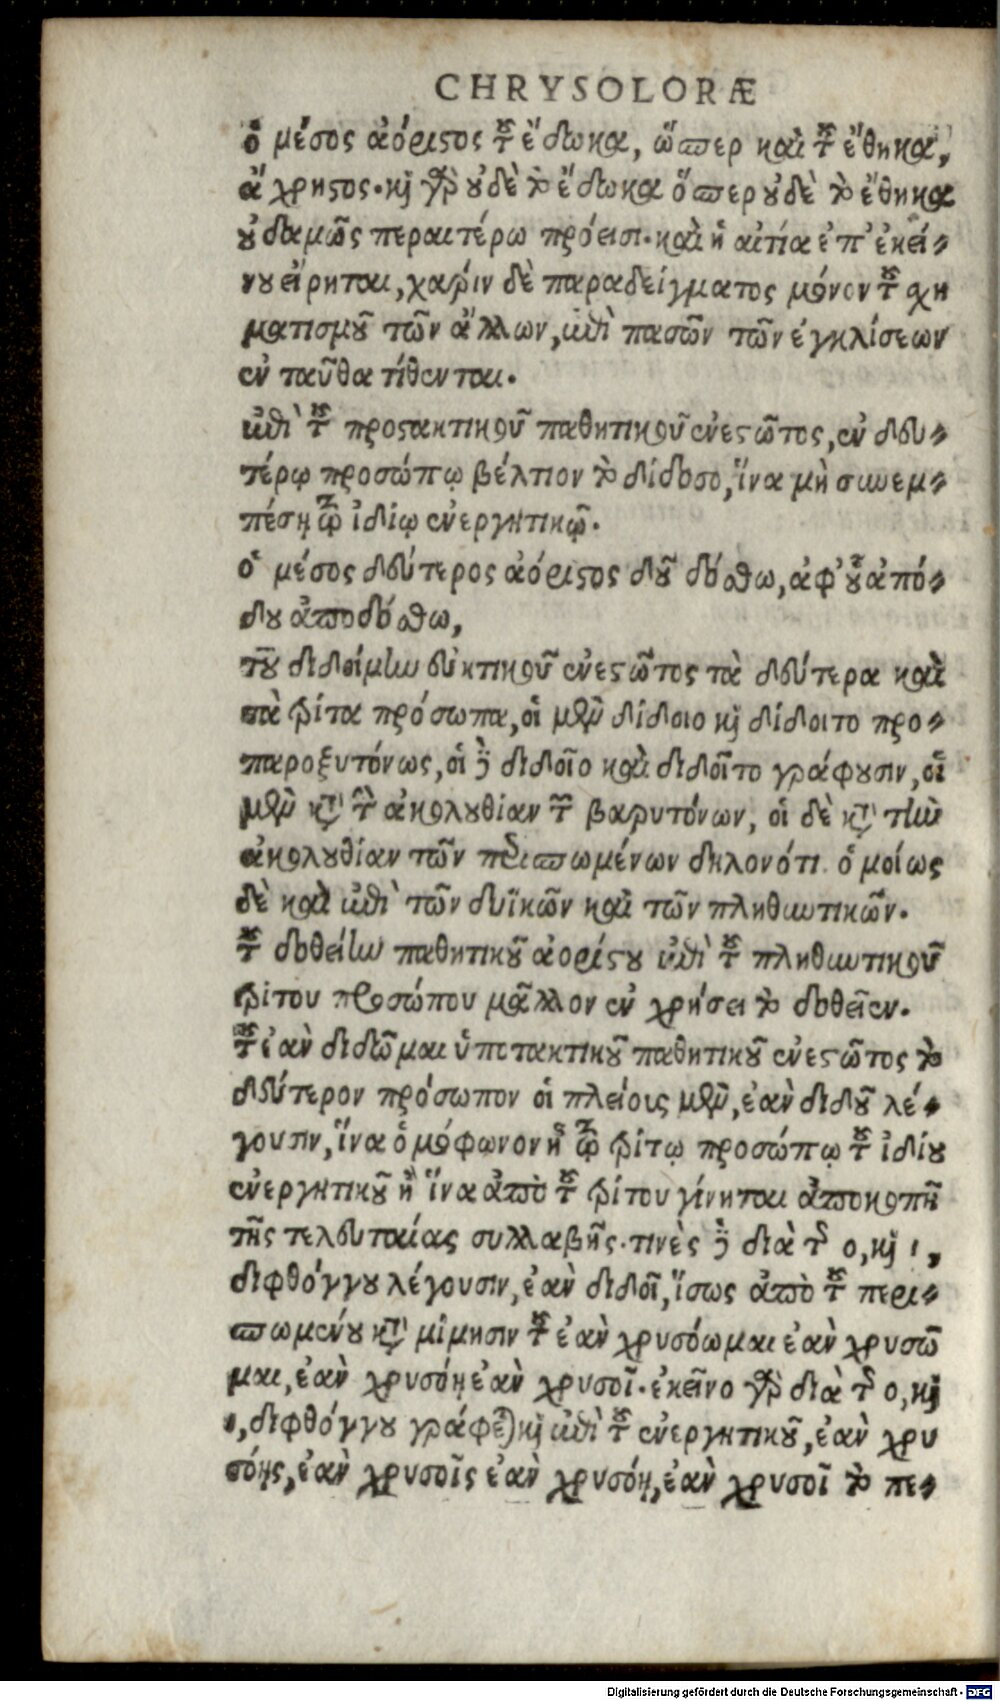 CHRYSOLORÆ
ὁ μέσος ἀόριςος τοῦ ἔδωκα, ὥσπερ καὶ τοῦ ἔθηκα,
ἄχρηςος. καὶ γὰρ οὐδὲ τὸ ἔδωκα ὅσπερ οὐδὲ τὸ ἔθηκα
οὐδαμῶς περαιτέρω πρόεισι. καὶ ἡ αἰτία ἐπ' ἐκεί-
νου εἴρηται, χάριν δὲ παραδείγματος μόνον τοῦ χη
ματισμοῦ τῶν ἄλλων, ἐπὶ πασῶν τῶν ἐγκλίσεων
ἐνταῦθα τίθενται.
ἐπὶ τοῦ προςακτικοῦ παθητικοῦ ἐνεςῶτος, ἐν δευ-
τέρῳ προσώπῳ βέλτιον τὸ δίδοσο, ἵνα μὴ συνεμ-
πέσῃ τῷ ἰδίῳ ἐνεργητικῷ.
ὁ μέσος δεύτερος ἀόριςος δοῦ δόσθω, ἀφ' οὗ ἀπό-
δου ἀποδόσθω,
τοῦ διδοίμην εὐκτικοῦ ἐνεςῶτος τὰ δεύτερα καὶ
τὰ τρίτα πρόσωπα, οἱ μὲν δίδοιο καὶ δίδοιτο προ-
παροξυτόνως, οἱ δὲ διδοῖο καὶ διδοῖτο γράφουσιν, οἱ
μὲν κατὰ τὴν ἀκολουθίαν τῶν βαρυτόνων, οἱ δὲ κατὰ τὴν
ἀκολουθίαν τῶν περισπωμένων δηλονότι. ὁμοίως
δὲ καὶ ἐπὶ τῶν δυϊκῶν καὶ τῶν πληθυντικῶν.
τοῦ δοθείην παθητικοῦ ἀορίςου ἐπὶ τοῦ πληθυντικοῦ
τρίτου προσώπου μᾶλλον ἐν χρήσει τὸ δοθεῖεν.
τοῦ ἐὰν διδῶμαι ὑποτακτικοῦ παθητικοῦ ἐνεςῶτος τὸ
δεύτερον πρόσωπον οἱ πλείους μὲν, ἐὰν διδοῦ λέ-
γουσιν, ἵνα ὁμόφωνον ᾖ τῷ τρίτῳ προσώπῳ τοῦ ἰδίου
ἐνεργητικοῦ ἢ ἵνα ἀπὸ τοῦ τρίτου γίνηται ἀποκοπῇ
τῆς τελευταίας συλλαβῆς. τινὲς δὲ διὰ τῆς ο, καὶ ι,
διφθόγγου λέγουσιν, ἐὰν διδοῖ, ἴσως ἀπὸ τοῦ περι-
σπωμένου κατὰ μίμησιν τοῦ ἐὰν χρυσόωμαι ἐὰν χρυσῶ
μαι, ἐὰν χρυσόῃ ἐὰν χρυσοῖ. ἐκεῖνο γὰρ διὰ τῆς ο, καὶ
ι, διφθόγγου γράφεται καὶ ἐπὶ τοῦ ἐνεργητικοῦ, ἐὰν χρυ
σόῃς, ἐὰν χρυσοῖς ἐὰν χρυσόῃ, ἐὰν χρυσοῖ τὸ πε-
Digitalisierung gefördert durch die Deutsche Forschungsgemeinschaft - DFG